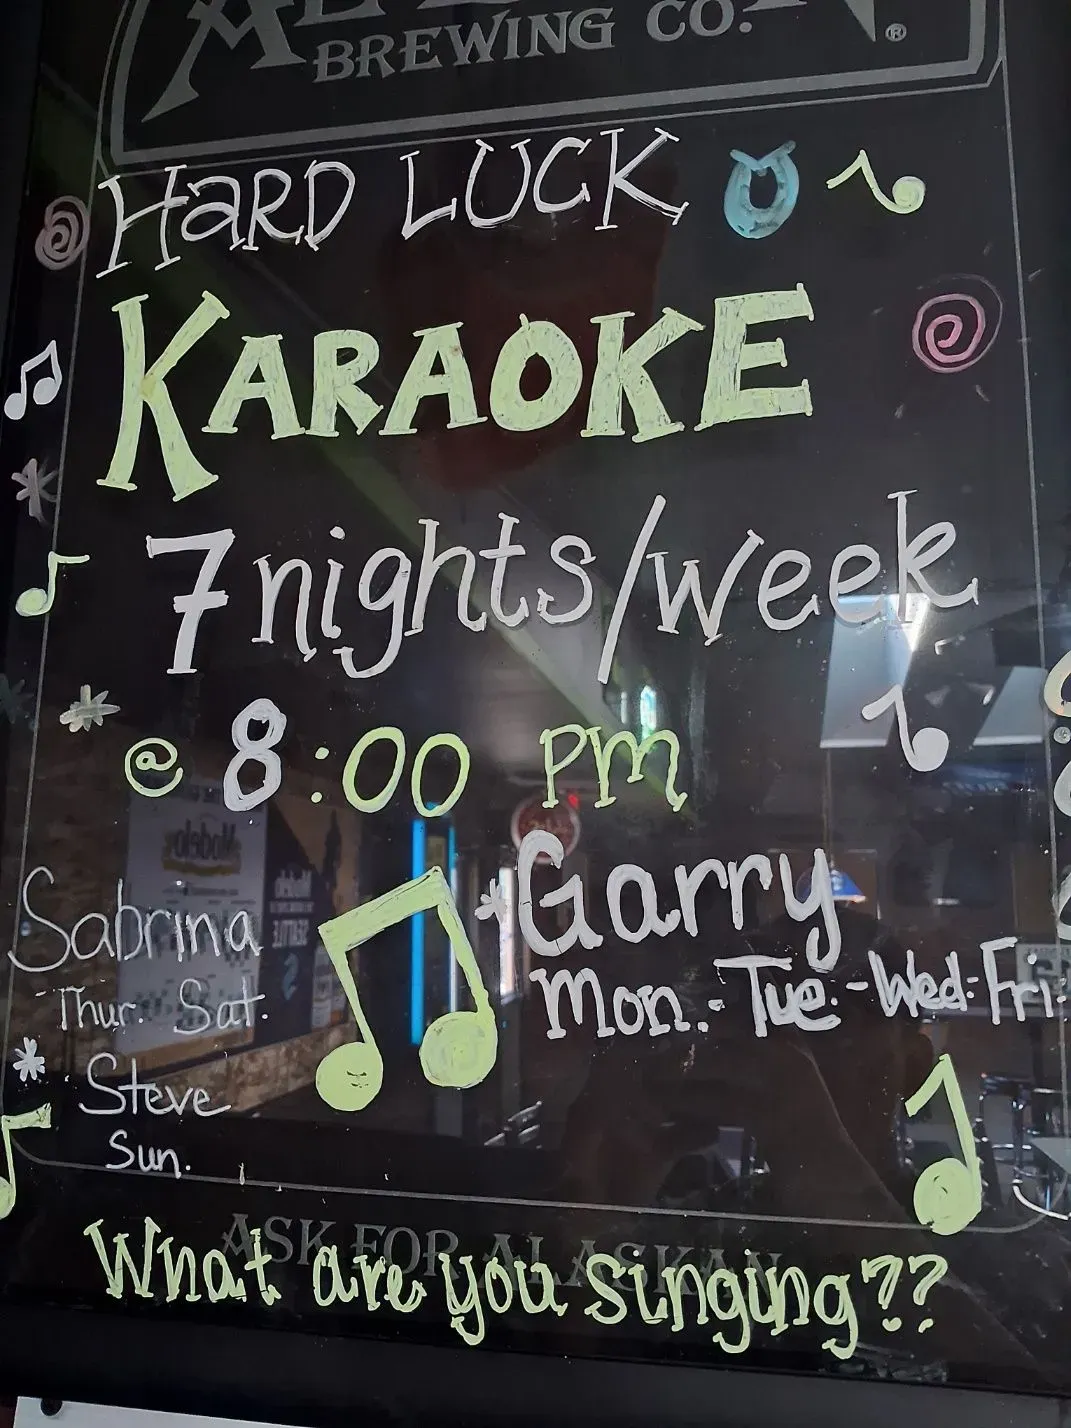 BREWING CO.®
HaRD LUCK
KARAOKE
7 nights/week
@ 8:00 pm
Sabrina
Thur. Sat.
* Steve
Sun.
*Garry
Mon.-Tue.-Wed-Fri.
ASK FOR ALASKAN
What are you singing??
Modelo